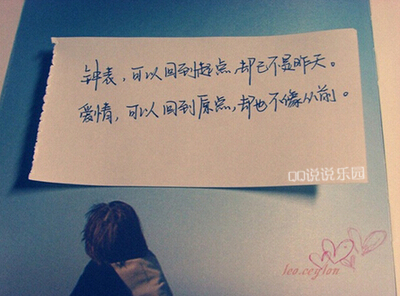 钟表，可以回到起点，却已不是昨天。
爱情，可以回到原点，却也不像从前。
QQ说说乐园
leo.ceylon